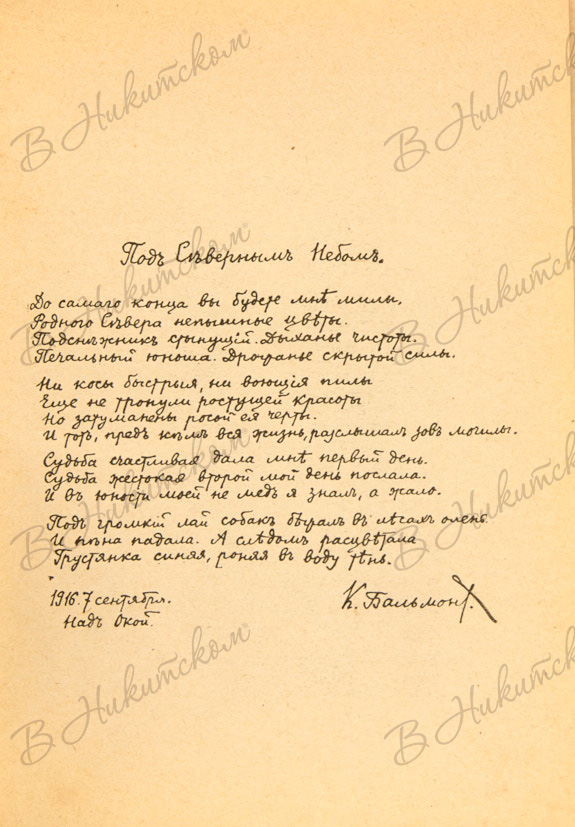 Подъ Сѣвернымъ Небомъ.
До самаго конца вы будете мнѣ милы,
Родного Сѣвера непышные цвѣты.
Подснѣжникъ стынущій. Дыханье чистоты.
Печальный юноша. Дрожанье скрытой силы.
Ни косы быстрыя, ни воющія пилы
Еще не тронули ростущей красоты
Но затуманены росой ея черты.
И тотъ, предъ кѣмъ вся жизнь, разслышалъ зовъ могилы.
Судьба счастливая дала мнѣ первый день.
Судьба жестокая второй мой день послала.
И въ юности моей не медъ я зналъ, а жало.
Подъ громкій лай собакъ бѣжалъ въ лѣсахъ олень.
И пѣна падала. А слѣдомъ расцвѣтала
Грустянка синяя, роняя въ воду тѣнь.
1916. 7 сентября.
Надъ Окой.
К. Бальмонт.
В Никитском
В Никитском
В Никитском
В Никитском
В Никитском
В Никитском
В Никитском
В Никитском